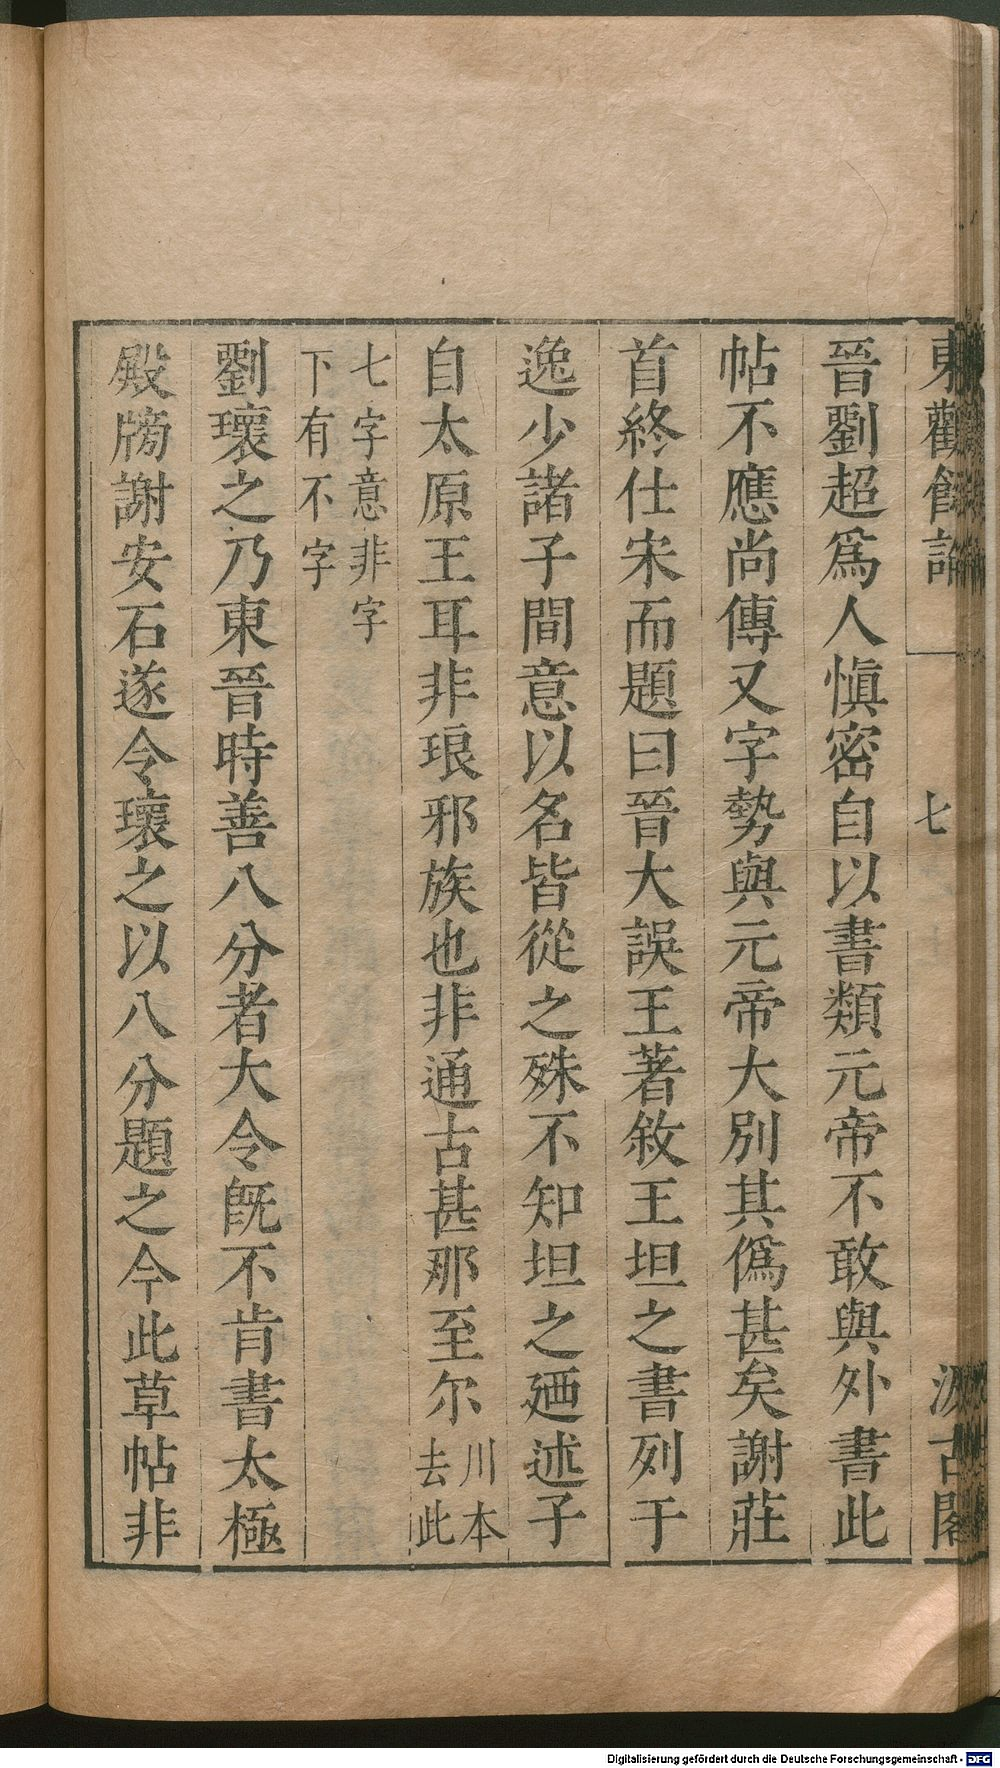 東觀餘論
七
汲古閣
晉劉超爲人愼密自以書類元帝不敢與外書此
帖不應尚傳又字勢與元帝大別其僞甚矣謝莊
首終仕宋而題曰晉大誤王著敘王坦之書列于
逸少諸子間意以名皆從之殊不知坦之廼述子
自太原王耳非琅邪族也非通古甚那至尔川本去此
七字意非字
下有不字
劉瓌之乃東晉時善八分者大令旣不肯書太極
殿牓謝安石遂令瓌之以八分題之今此草帖非
Digitalisierung gefördert durch die Deutsche Forschungsgemeinschaft - DFG